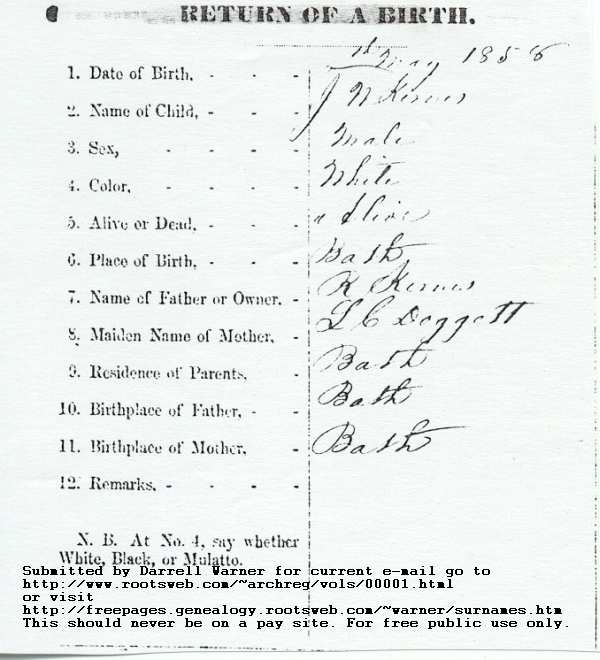 RETURN OF A BIRTH.
1. Date of Birth, - - - May 1858
2. Name of Child, - - - J N Kernes
3. Sex, - - - - Male
4. Color, - - - - White
5. Alive or Dead, - - - Alive
6. Place of Birth, - - - Bath
7. Name of Father or Owner. - R Kernes
8. Maiden Name of Mother, - L C Doggett
9. Residence of Parents, - Bath
10. Birthplace of Father, - - Bath
11. Birthplace of Mother, - Bath
12. Remarks. - - - -
N. B. At No. 4, say whether
White, Black, or Mulatto.
Submitted by Darrell Warner for current e-mail go to
http://www.rootsweb.com/~archreg/vols/00001.html
or visit
http://freepages.genealogy.rootsweb.com/~warner/surnames.htm
This should never be on a pay site. For free public use only.